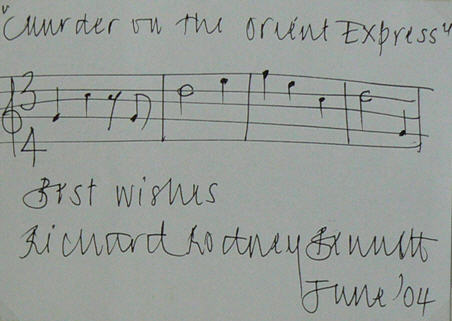 "Murder on the Orient Express"
3
4
Best wishes
Richard Rodney Bennett
June '04